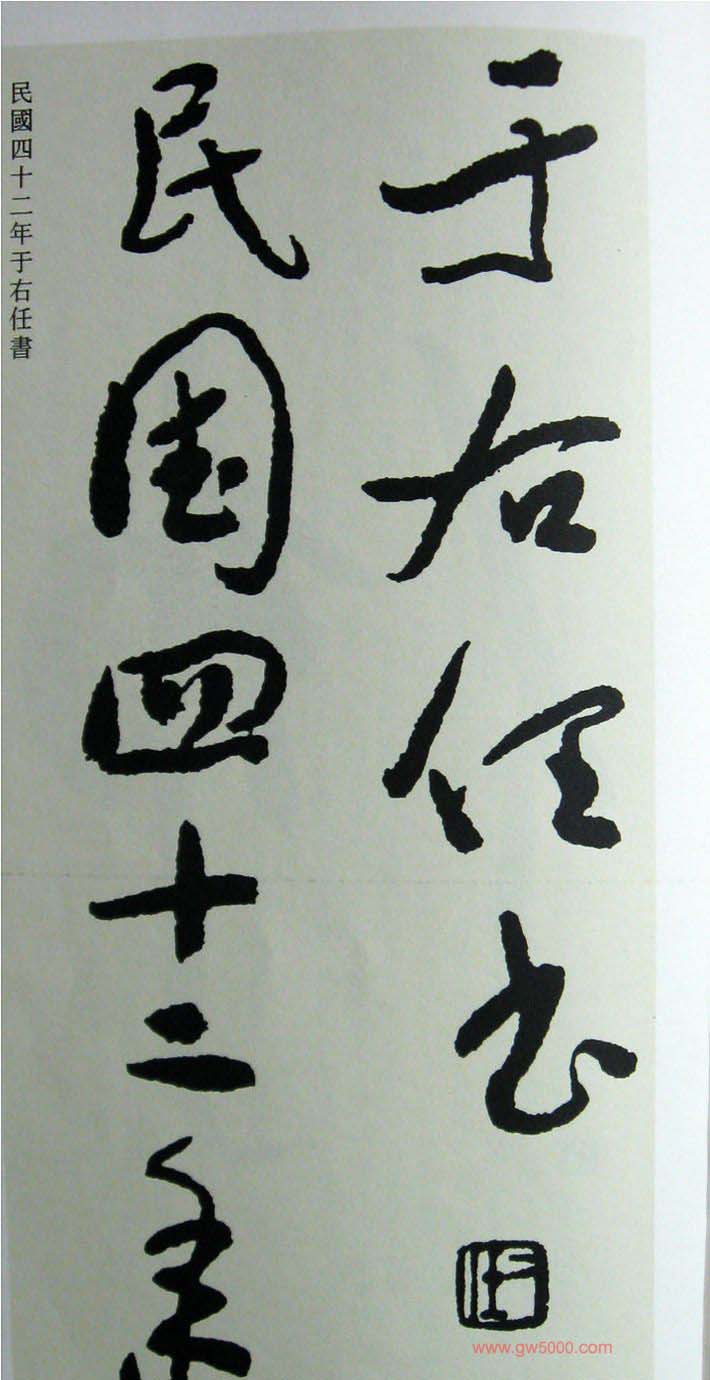 于右任書
右任
民國四十二年
民國四十二年于右任書
www.gw5000.com